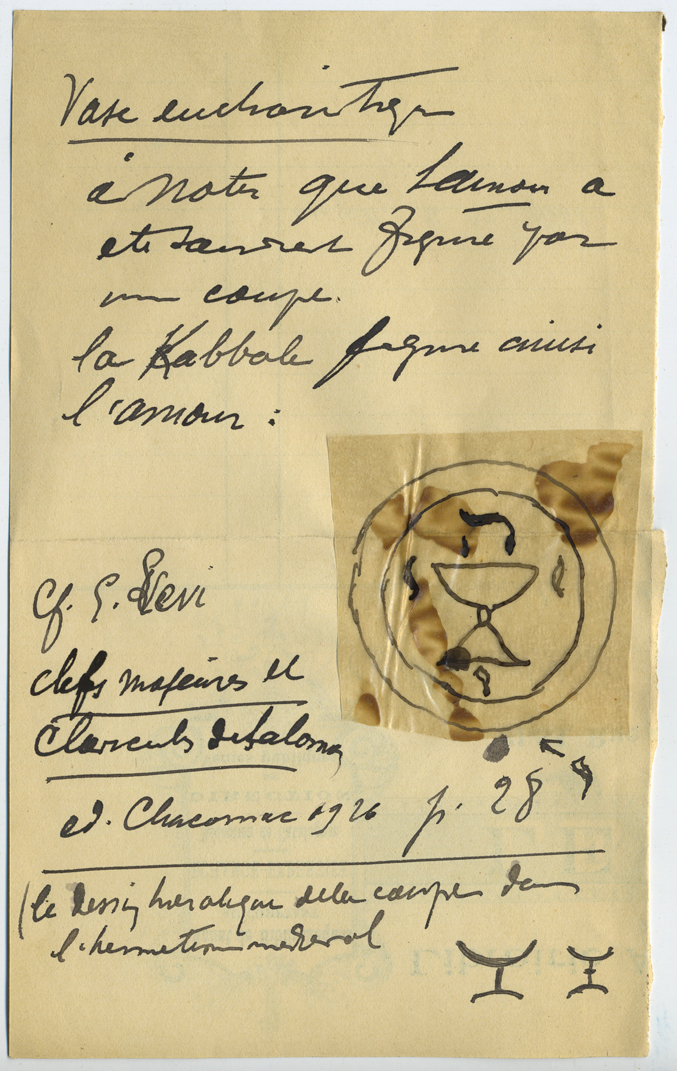 Vase eucharistique
à noter que l'amour a
été souvent figuré par
une coupe.
la Kabbale figure ainsi
l'amour :
ה
י
Cf. E. Levi
clefs majeures et
Clavicules de Salomon
ed. Chacornac 1926 p. 28
(le dessin hieratique de la coupe dans
l'hermetisme medieval